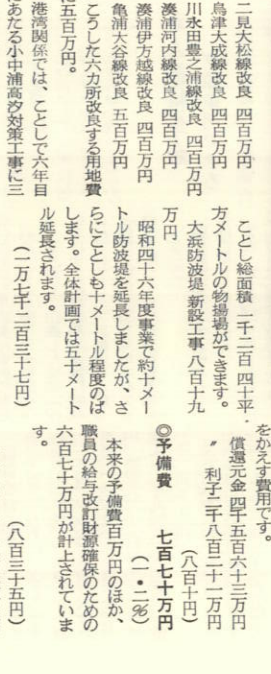 二見大松線改良 四百万円
烏津大成線改良 四百万円
川永田豊之浦線改良 四百万円
湊浦河内線改良 四百万円
湊浦伊方越線改良 四百万円
亀浦大谷線改良 五百万円
こうした六カ所改良する用地費
に五百万円。
港湾関係では、ことしで六年目
あたる小中浦高汐対策工事に三
ことし総面積一千二百四十平
方メートルの物揚場ができます。
大浜防波堤新設工事 八百十九
万円
昭和四十六年度事業で約十メー
トル防波堤を延長しましたが、さ
らにことしも十メートル程度のば
します。全体計画では五十メート
ル延長されます。
(一万七千二百三十七円)
をかえす費用です。
償還元金 四千五百六十三万円
〃 利子 二千八百二十一万円
(八百十円)
◎予備費 七百七十万円
(一・二%)
本来の予備費百万円のほか、
職員の給与改訂財源確保のための
六百七十万円が計上されていま
す。
(八百三十五円)